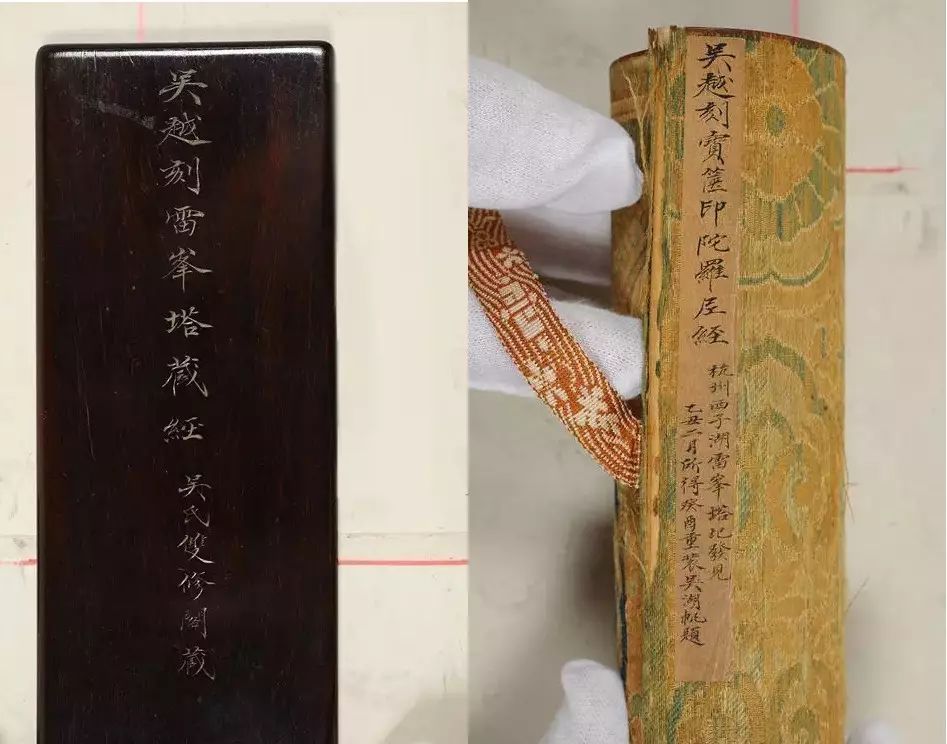 吳越刻雷峯塔藏經
吳氏雙修閣藏
吳越刻寶篋印陀羅尼經
杭州西子湖雷峯塔圮發見
乙丑二月所得癸酉重裝吳湖帆題